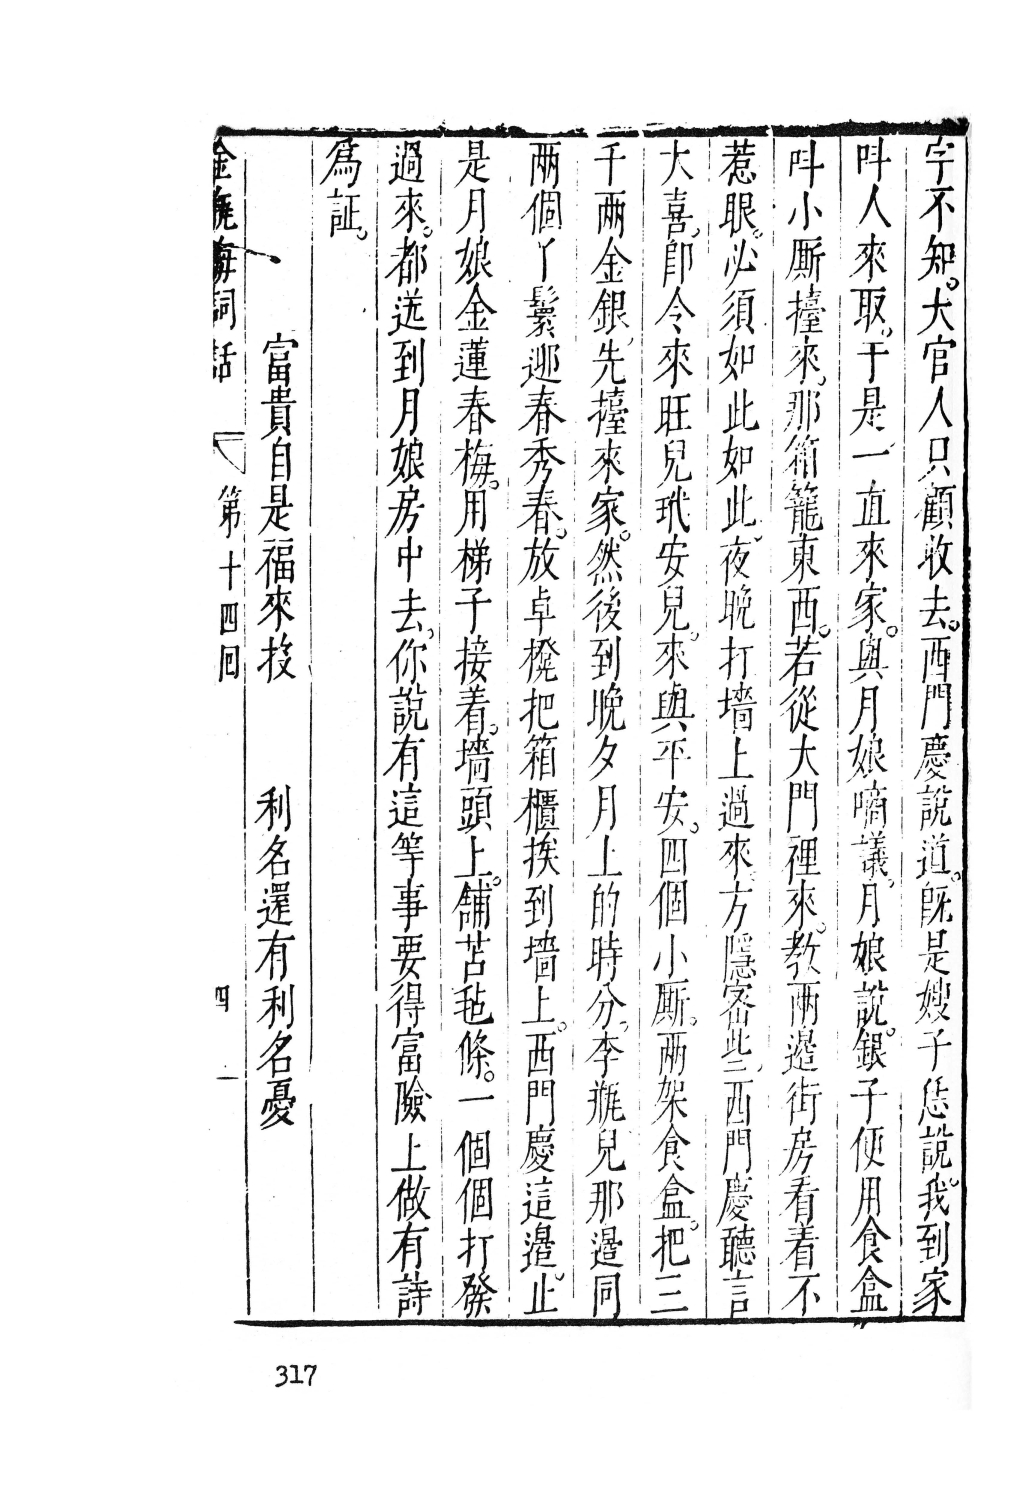 字不知。大官人只顧收去。西門慶說道。旣是嫂子恁說。我到家
呌人來取。于是一直來家。與月娘啇議。月娘說。銀子便用食盒
呌小厮擡來。那箱籠東西。若從大門裡來。教兩邉街房看着不
惹眼。必須如此如此。夜晚打墻上過來。方隱密些。西門慶聽言
大喜。卽令來旺兒玳安兒。來與平安。四個小厮。兩架食盒。把三
千兩金銀。先擡來家。然後到晚夕月上的時分。李瓶兒那邉同
兩個丫鬟迎春秀春。放卓櫈把箱櫃挨到墻上。西門慶這邉。止
是月娘金蓮春梅。用梯子接着。墻頭上。舖苫毡條。一個個打發
過來。都送到月娘房中去。你說有這等事要得富險上做有詩
爲証。
富貴自是福來投　利名還有利名憂
金瓶梅詞話　第十四回　四一
317